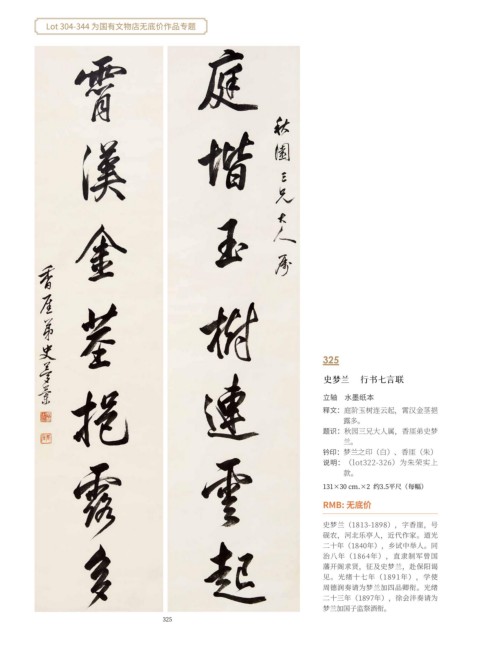 Lot 304-344 为国有文物店无底价作品专题
庭堦玉樹連雲起
秋園三兄大人属
霄漢金莖挹露多
香厓弟史夢蘭
325
史梦兰 行书七言联
立轴 水墨纸本
释文：庭阶玉树连云起，霄汉金茎挹
露多。
题识：秋园三兄大人属，香崖弟史梦
兰。
钤印：梦兰之印（白）、香崖（朱）
说明：（lot322-326）为朱荣实上
款。
131×30 cm.×2 约3.5平尺（每幅）
RMB: 无底价
史梦兰（1813-1898），字香崖，号
砚农，河北乐亭人，近代作家。道光
二十年（1840年），乡试中举人。同
治八年（1864年），直隶制军曾国
藩开阁求贤，征及史梦兰，赴保阳谒
见。光绪十七年（1891年），学使
周德润奏请为梦兰加四品卿衔。光绪
二十三年（1897年），徐会沣奏请为
梦兰加国子监祭酒衔。
325